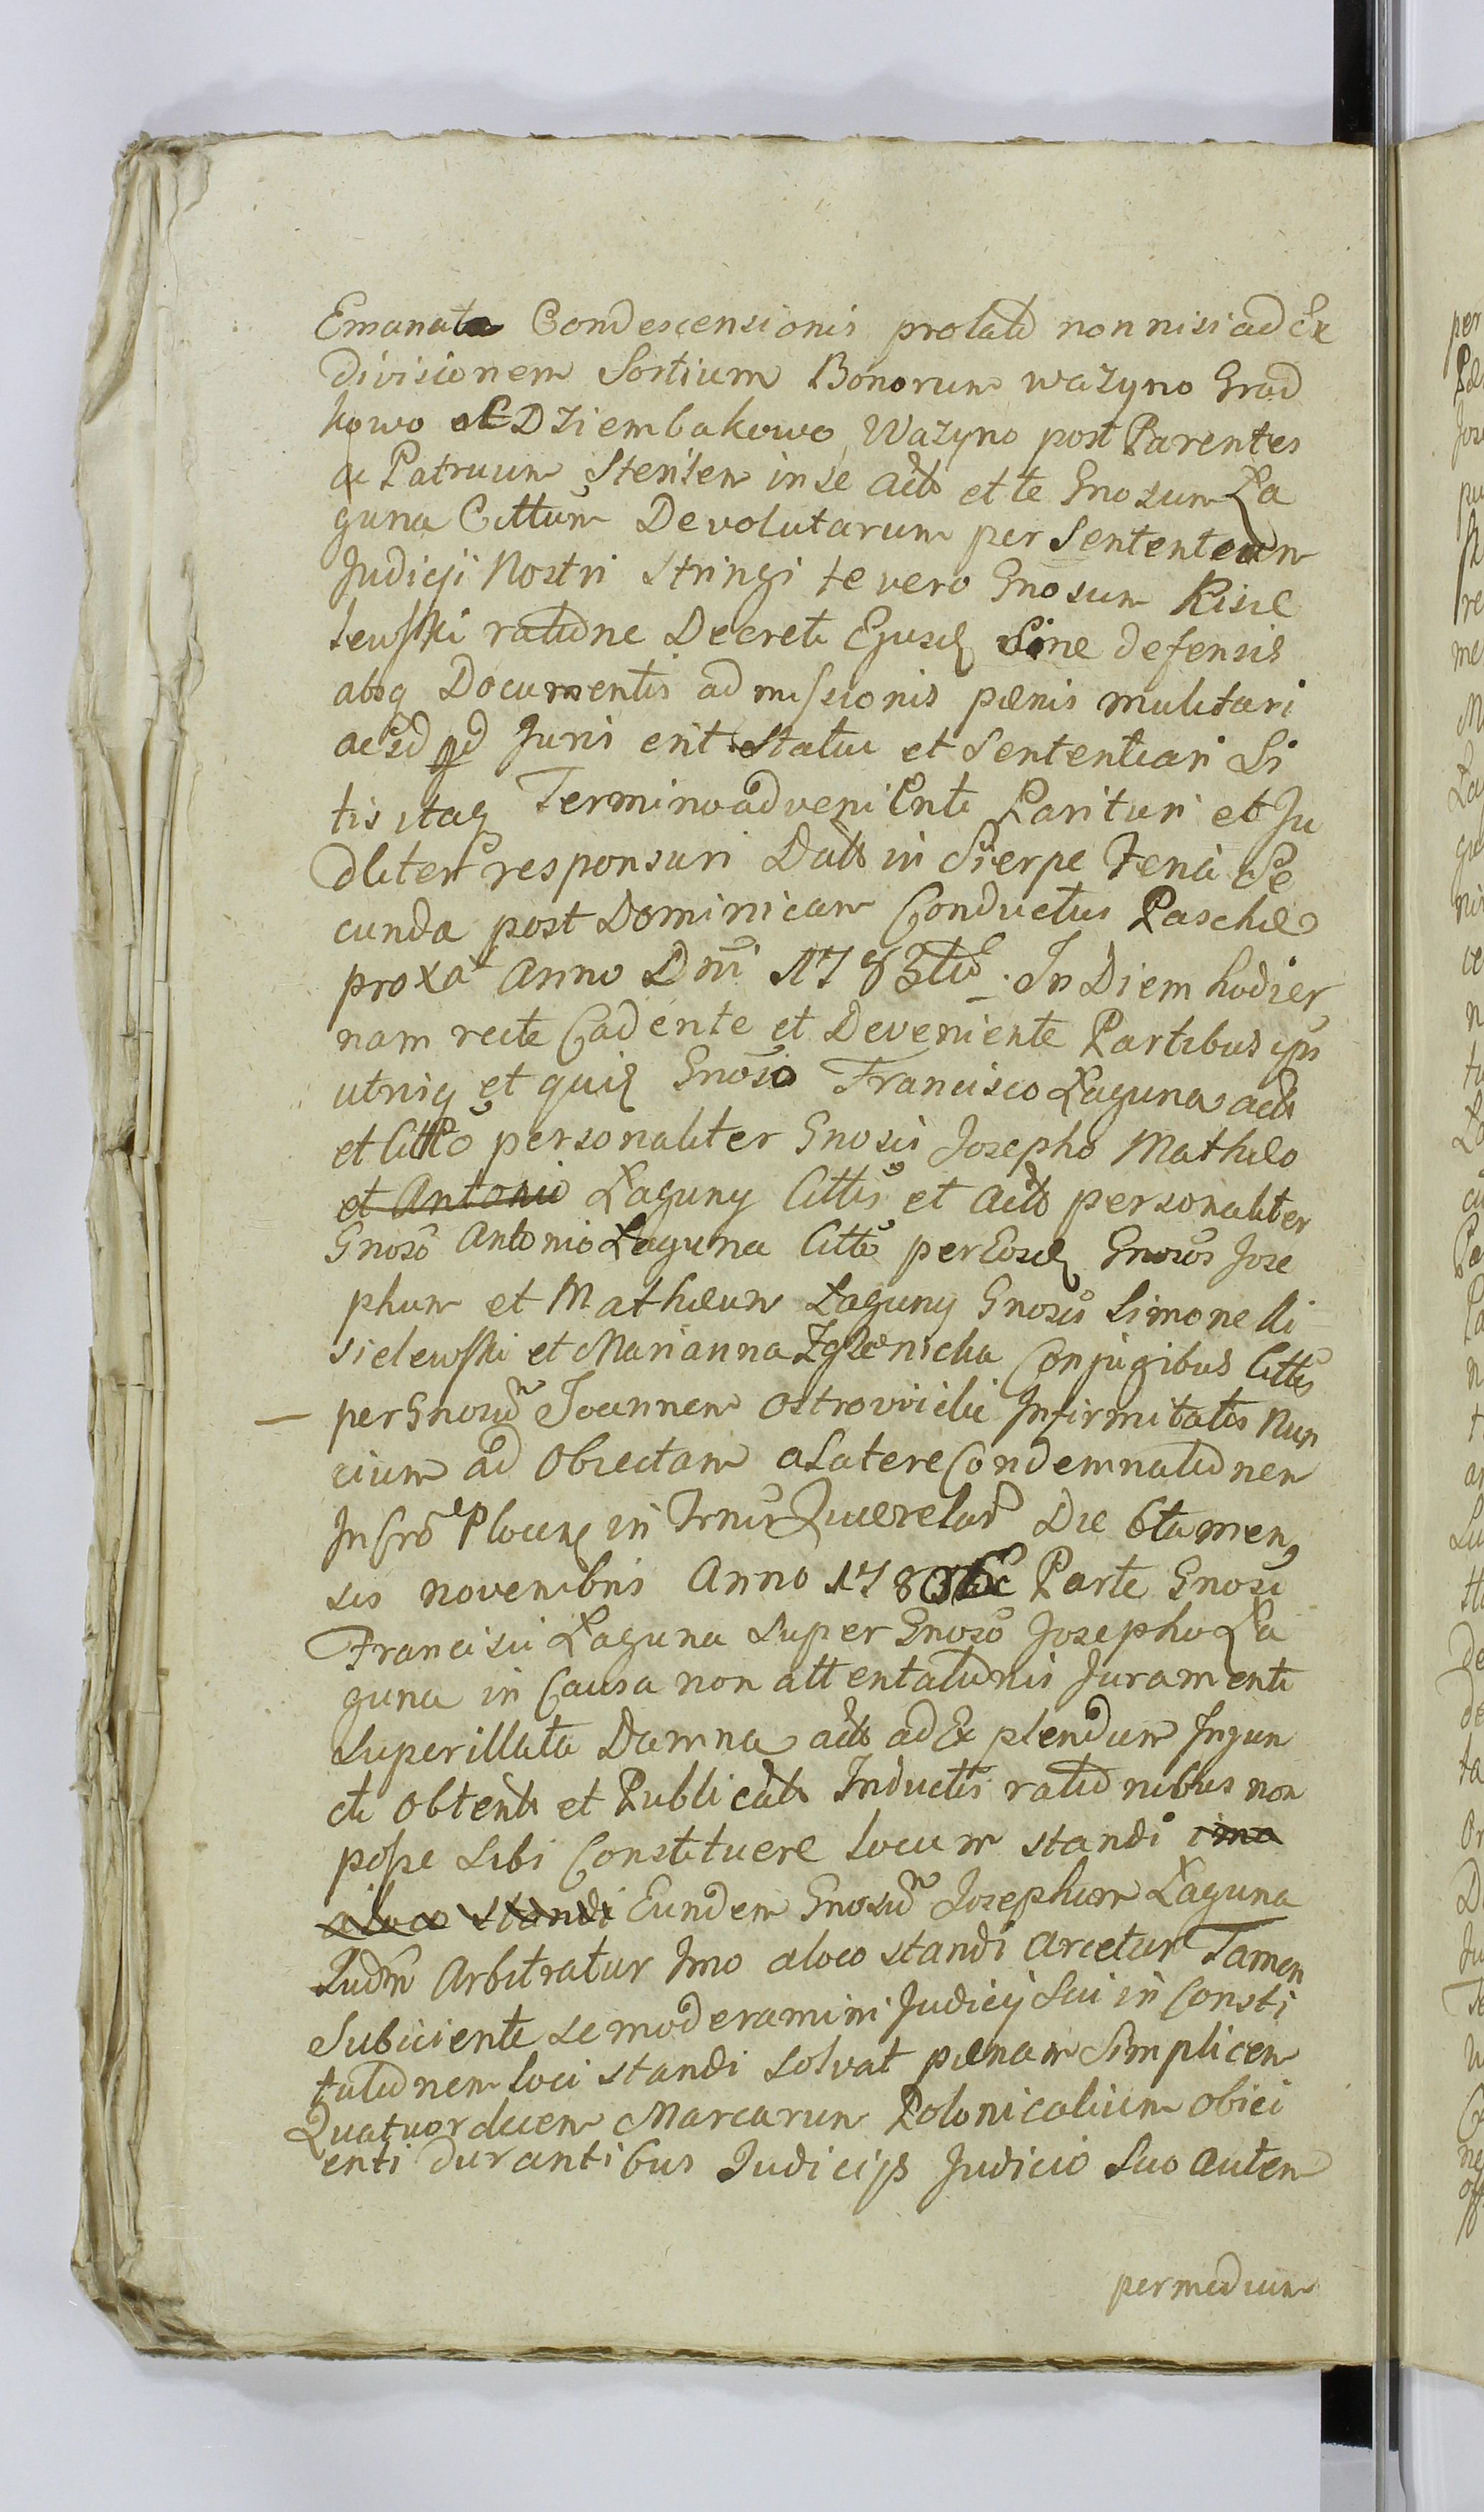 Emanata Condescensionis prolatu non nisi ad Ex
divisionem Sortium Bonorum Wazyno Grad
kowo et Dziembakowo, Wazyno post Parentes
ac Patruum Sterilem in se actt et te Gnosum Ła
guna Cittum Devolutarum per Sententeam
Judicji Nostri Stringi te vero Gnosum Kisie
lewski ratione Decreti Ejusd Sine defensis
absq Documentis admissionis pænis mulctari
ac id qd Juris erit Statui et Sententiari Si
tis itaq Termino adveniente Parituri et Ju
dliter responsuri Datt in Sierpc Feria Se
cunda post Dominicam Conductus Paschæ
proxa Anno Dni 1783tio. In Diem hodier
nam recte Cadente et Deveniente Partibus ips
utrisq et quid Gnoso Francisco Łaguna actt
et Citto personaliter Gnosis Josepho Mathæo
et Antonio Łaguny Cittis et actt personaliter
Gnoso Antonio Łaguna Citto per Eosd Gnosos Jose
phum et Mathæum Łaguny Gnosis Simone Ki
sielewski et Marianna Zglenicka Conjugibus Cittis
— per Gnosum Joannem Ostrowicki Infirmitatis Nun
cium ad Obiectam a Latere Condemnationem
In Cro Plocen in Trnis Querelar Die 6ta men
sis novembris Anno 178 Parte Gnosi
Francisci Łaguna super Gnoso Josepho Ła
guna in Causa non attentationis Juramenti
super illata Damna actt ad Explendum Injun
cti Obtent et Publicat Inductis rationibus non
posse Sibi Constituere locum standi imo
a loco standi Eundem Gnosum Josephum Łaguna
Judm Arbitratur Imo a loco standi arcetur Tamen
Subiciente se moderamini Judicij Sui in Consti
tutionem loci standi Solvat pænam Simplicem
Quatuordecem Marcarum Polonicalium obici
enti durantibus Judicijs Judicio Suo autem
per medium